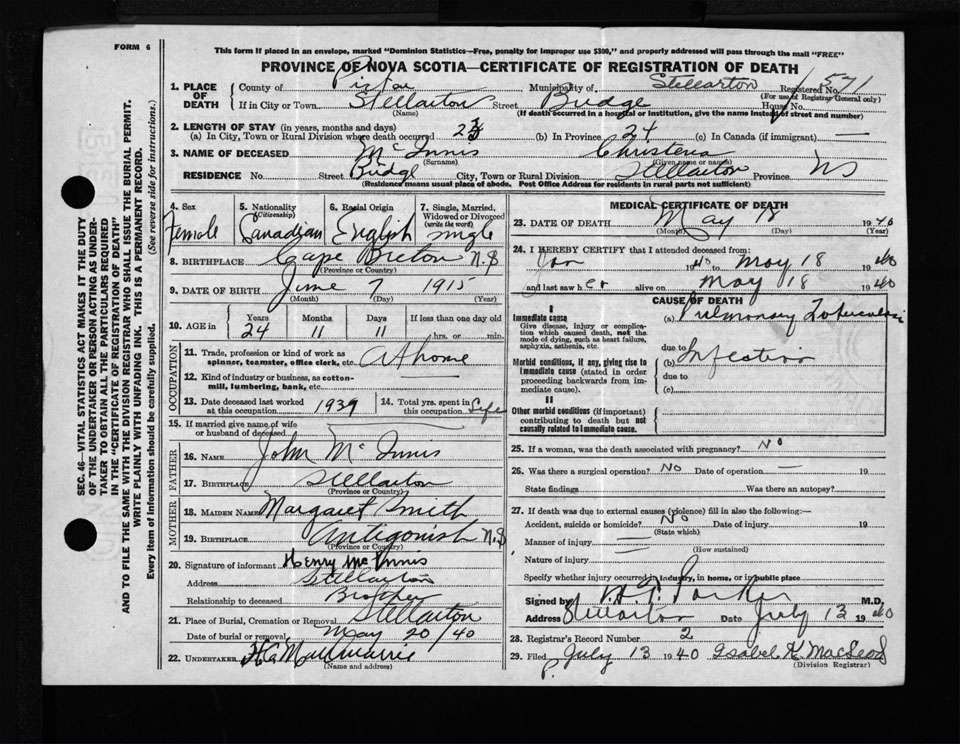 FORM 6
This form if placed in an envelope, marked "Dominion Statistics—Free, penalty for improper use $300," and properly addressed will pass through the mail "FREE"
PROVINCE OF NOVA SCOTIA—CERTIFICATE OF REGISTRATION OF DEATH
1. PLACE OF DEATH County of Pictou Municipality of Stellarton Registered No. 571
(For use of Registrar General only)
If in City or Town Stellarton Street Budge House No.
(Name) (If death occurred in a hospital or institution, give the name instead of street and number)
2. LENGTH OF STAY (in years, months and days)
(a) In City, Town or Rural Division where death occurred (b) In Province 24 (c) In Canada (if immigrant) —
3. NAME OF DECEASED McInnis Christena
(Surname) (Given name or names)
RESIDENCE No. Street Budge City, Town or Rural Division Stellarton Province NS
(Residence means usual place of abode. Post Office Address for residents in rural parts not sufficient)
4. Sex Female
5. Nationality (Citizenship) Canadian
6. Racial Origin English
7. Single, Married, Widowed or Divorced (write the word) single
8. BIRTHPLACE Cape Breton N.S
(Province or Country)
9. DATE OF BIRTH June 7 1915
(Month) (Day) (Year)
10. AGE in Years 24 Months 11 Days 11 If less than one day old hrs. or min.
OCCUPATION
11. Trade, profession or kind of work as spinner, teamster, office clerk, etc. At home
12. Kind of industry or business, as cotton-mill, lumbering, bank, etc. —
13. Date deceased last worked at this occupation 1939
14. Total yrs. spent in this occupation Life
15. If married give name of wife or husband of deceased
FATHER
16. NAME John McInnis
17. BIRTHPLACE Stellarton
(Province or Country)
MOTHER
18. MAIDEN NAME Margaret Smith
19. BIRTHPLACE Antigonish N.S
(Province or Country)
20. Signature of informant Henry McInnis
Address Stellarton
Relationship to deceased Brother
21. Place of Burial, Cremation or Removal Stellarton
Date of burial or removal May 20/40
22. UNDERTAKER
(Name and address)
MEDICAL CERTIFICATE OF DEATH
23. DATE OF DEATH May 18 1940
(Month) (Day) (Year)
24. I HEREBY CERTIFY that I attended deceased from:
Jan 40 to May 18 1940
and last saw her alive on May 18 1940
CAUSE OF DEATH
I
Immediate cause
Give disease, injury or complication which caused death, not the mode of dying, such as heart failure, asphyxia, asthenia, etc.
(a) Pulmonary Tuberculosis
due to
Morbid conditions, if any, giving rise to immediate cause (stated in order proceeding backwards from immediate cause).
(b) Infection
due to
(c)
II
Other morbid conditions (if important) contributing to death but not causally related to immediate cause.
25. If a woman, was the death associated with pregnancy? No
26. Was there a surgical operation? No Date of operation — 19
State findings Was there an autopsy?
27. If death was due to external causes (violence) fill in also the following:—
Accident, suicide or homicide? No Date of injury 19
(State which)
Manner of injury —
(How sustained)
Nature of injury —
Specify whether injury occurred in industry, in home, or in public place
Signed by Parker M.D.
Address Stellarton Date July 13 1940
28. Registrar's Record Number 2
29. Filed July 13 1940 Isabel K. MacLeod
(Division Registrar)
SEC. 46—VITAL STATISTICS ACT MAKES IT THE DUTY
OF THE UNDERTAKER OR PERSON ACTING AS UNDERTAKER TO OBTAIN ALL THE PARTICULARS REQUIRED
IN THE "CERTIFICATE OF REGISTRATION OF DEATH"
AND TO FILE THE SAME WITH THE DIVISION REGISTRAR WHO SHALL ISSUE THE BURIAL PERMIT.
WRITE PLAINLY WITH UNFADING INK. THIS IS A PERMANENT RECORD.
Every item of information should be carefully supplied. (See reverse side for instructions.)